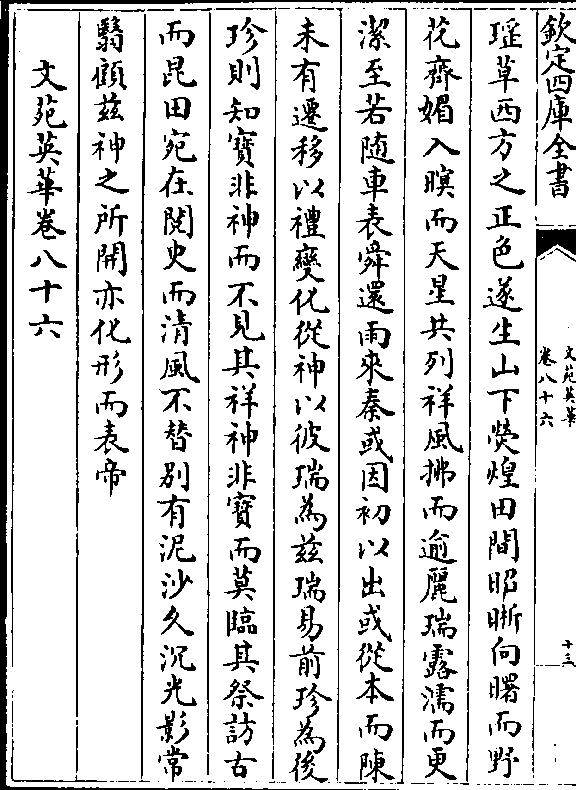 欽定四庫全書
文苑英華
卷八十六
十三
瑶草西方之正色遂生山下熒煌田間昭晣向曙而野
花齊媚入暝而天星共列祥風拂而逾麗瑞露濡而更
潔至若随車表舜還雨來秦或因初以出或從本而陳
未有遷移以禮變化從神以彼瑞為兹瑞易前珍為後
珍則知寶非神而不見其祥神非寶而莫臨其祭訪古
而昆田宛在閱史而清風不替别有泥沙久沉光影常
翳顧兹神之所開亦化形而表帝
文苑英華卷八十六